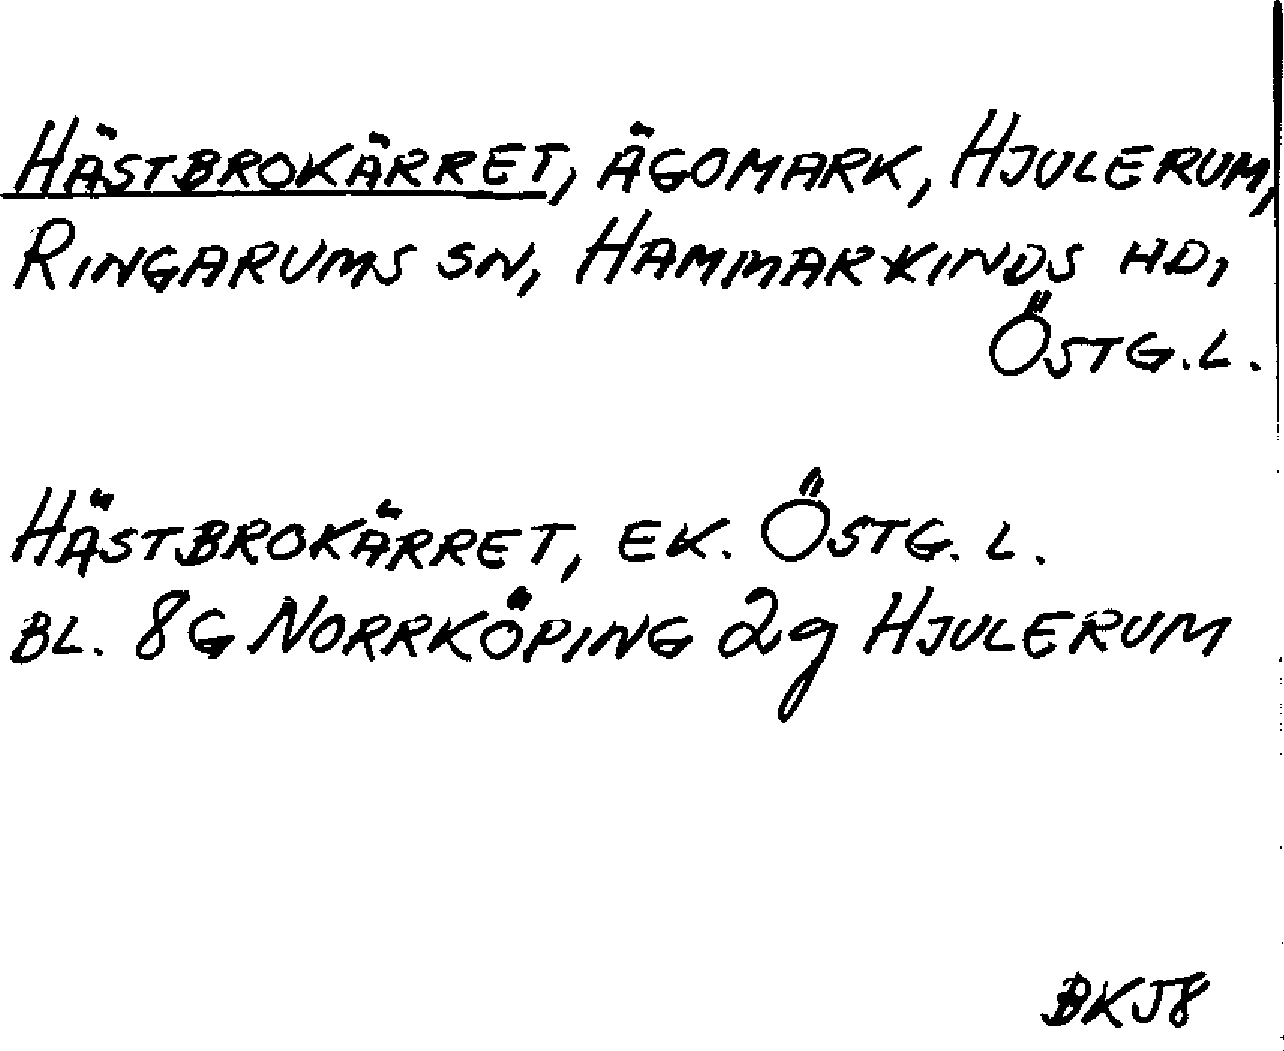 HÄSTBROKÄRRET, ÄGOMARK, HJULERUM,
RINGARUMS SN, HAMMARKINDS HD,
ÖSTG.L.
HÄSTBROKÄRRET, EK. ÖSTG. L.
BL. 8G NORRKÖPING 2g HJULERUM
BKJ8